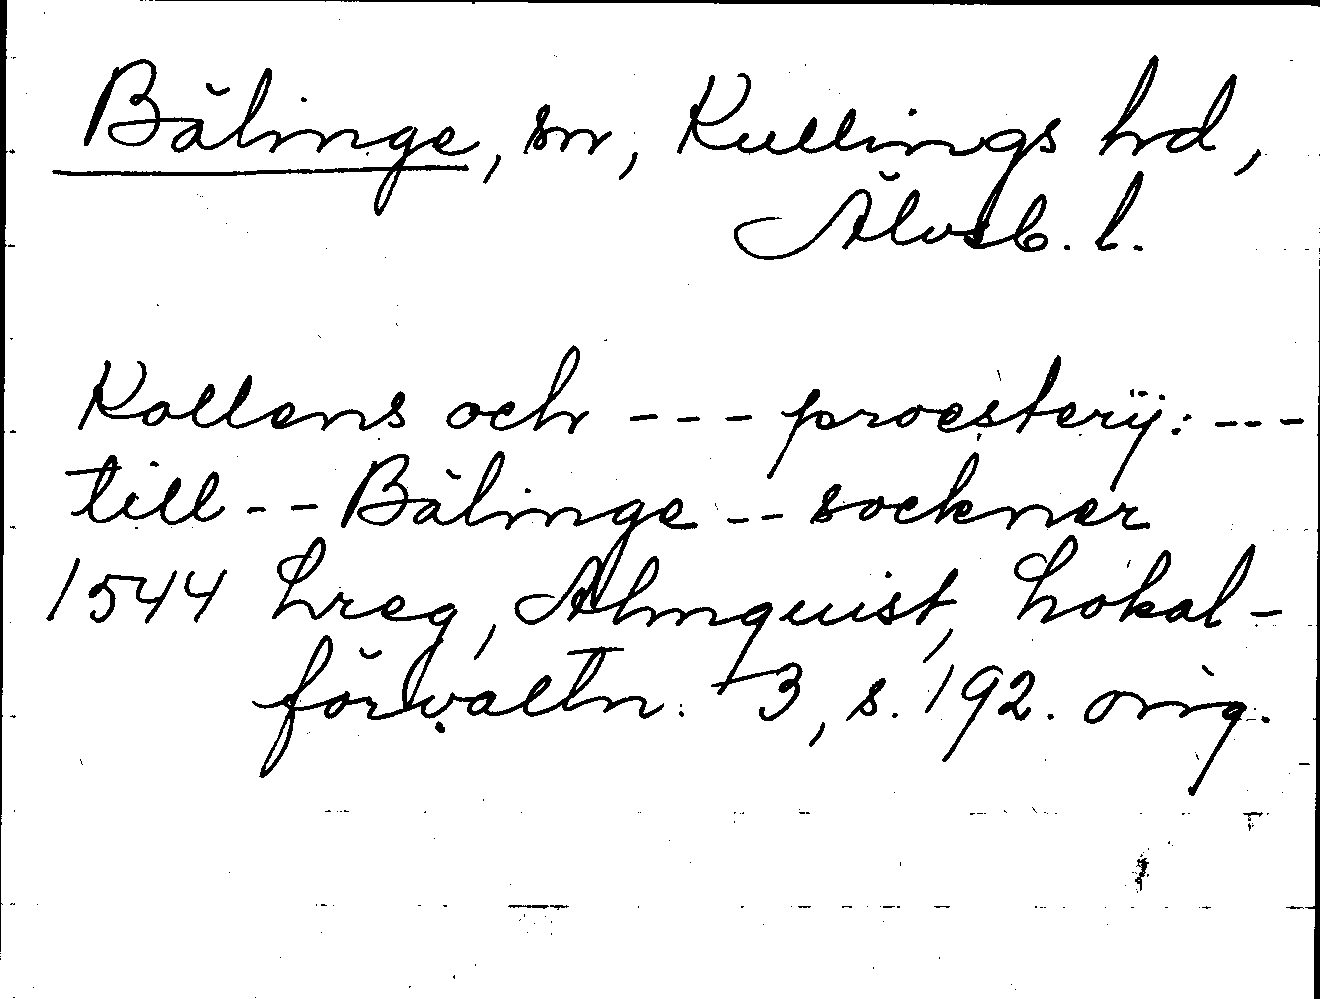 Bälinge, sn, Kullings hd,
Älvsb. l.
Kollens och --- proesterÿ: ---
till -- Bälinge -- sockner
1544 Lreg, Almquist, Lokal-
förvaltn. 3, s. 192. orig.